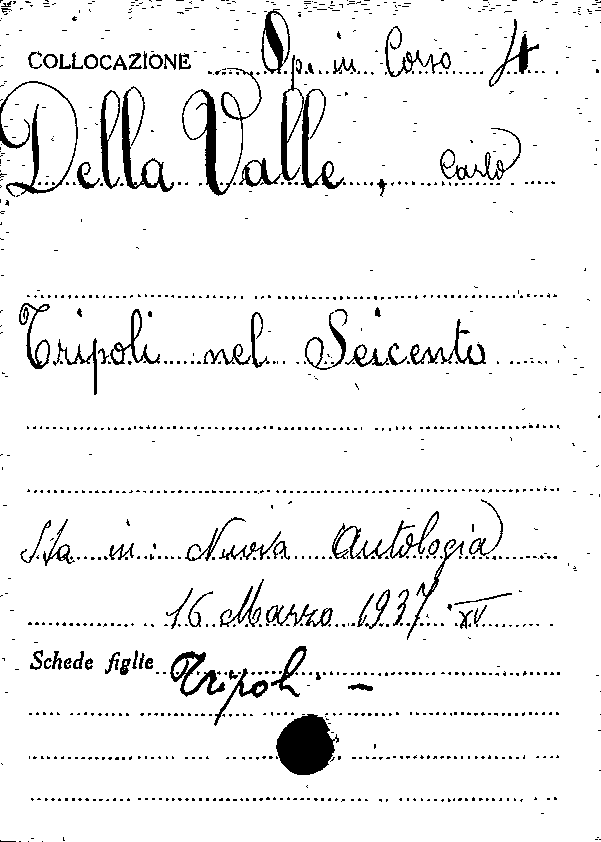 COLLOCAZIONE Op. in Corso 4
Della Valle, Carlo
Tripoli nel Seicento
Sta in: Nuova Antologia
16 Marzo 1937. XV
Schede figlie Tripoli. -